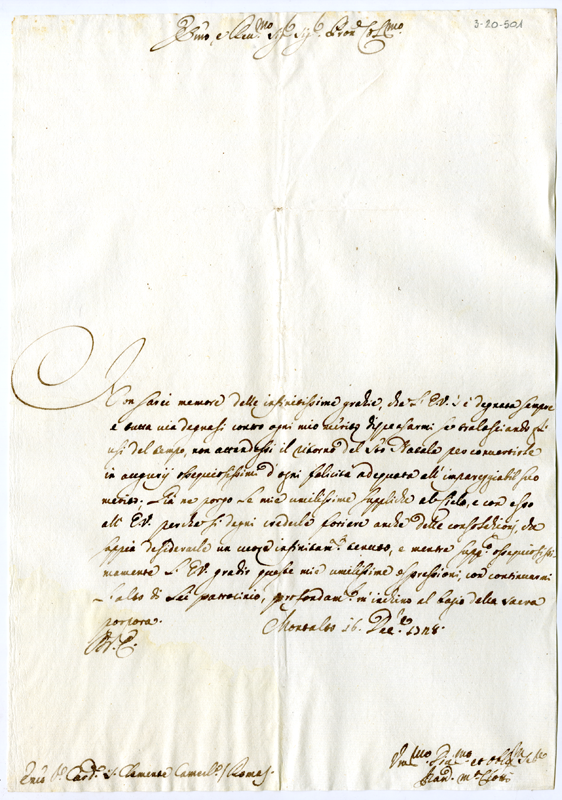 Em̃o, e Reu.mo Sig.e Sig.e Pron̄ Col.mo
3-20-501
Non sarei memore delle infinitissime grazie, che l'E.V. s'è degnata sempre
e tutta via degnasi contro ogni mio merito dispensarmi se tralasciando gl'
usi del tempo, non attendessi il ritorno del S.to Natale per convertirlo
in augurij ossequiosissimi d'ogni felicità adequata all'impareggiabil suo
merito. Ne porgo le mie umilissime suppliche al Cielo, e con esso
all'E.V. perché si degni crederle foriere anche delle consolazioni, che
sappia desiderarle un cuore infinitam.e tenuto, e mentre supp.co ossequiosissi-
mamente l'E.V. gradir queste mie umilissime espressioni, con continuarmi
l'alto di Lei patrocinio, profondam.e m'inchino al bacio della sacra
porpora.
Montalto 16. Dec.re 1728.
Di V.E.
Em̃o S.r Card.e S. Clemente Camerl.o / Roma /.
Um.mo Diu.mo et Obl.mo Se.re